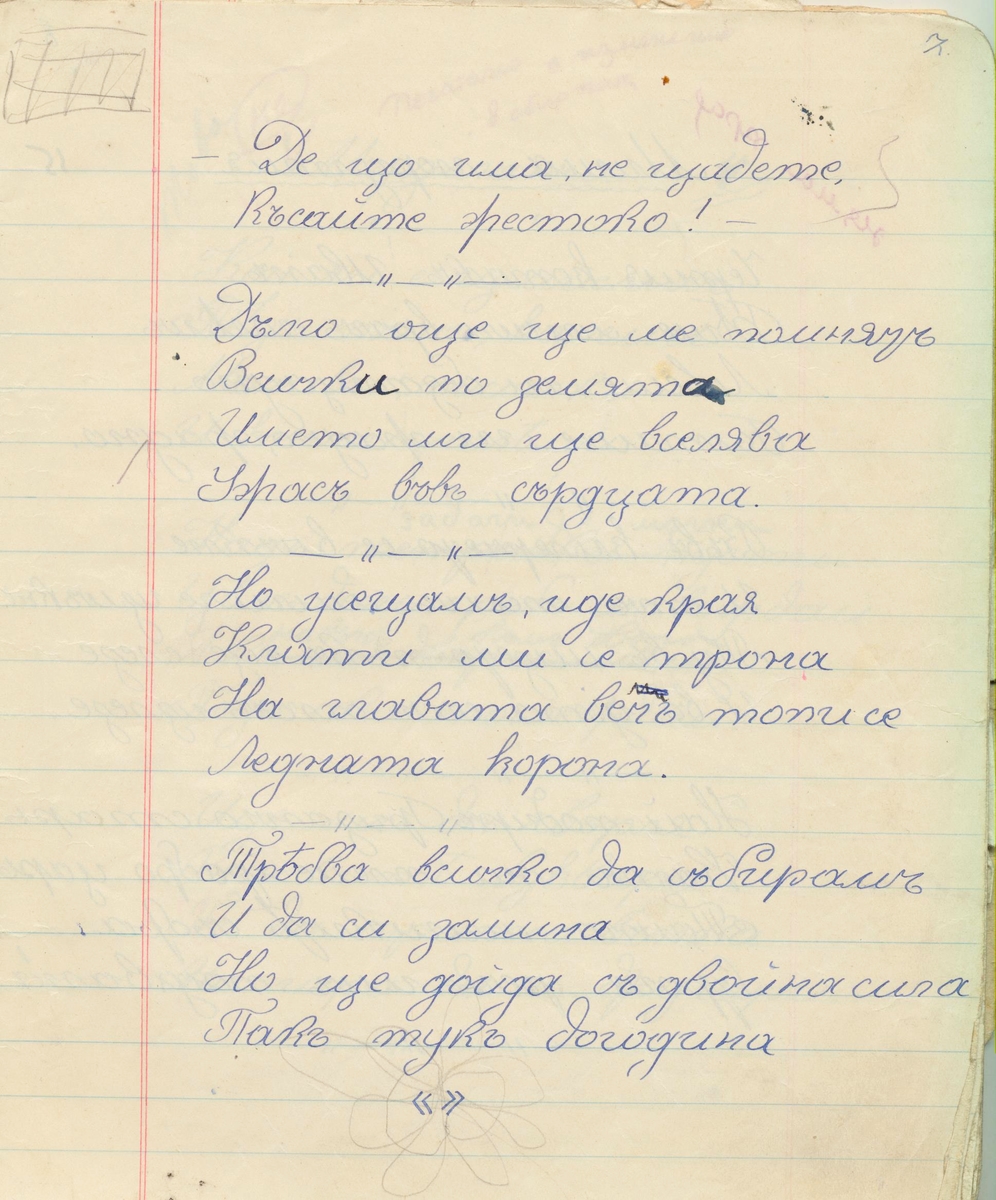 7.
– Де що има, не щадете,
Късайте жестоко! –
— " — " —
Дълго още ще ме помнятъ
Всички по земята
Името ми ще вселява
Ужасъ въвъ сърдцата.
— " — " —
Но усещамъ, иде края
Клати ми се трона
На главата вечъ топи се
Ледната корона.
— " — " —
Трѣбва всичко да събирамъ
И да си замина
Но ще дойда съ двойна сила
Пакъ тукъ догодина
« »